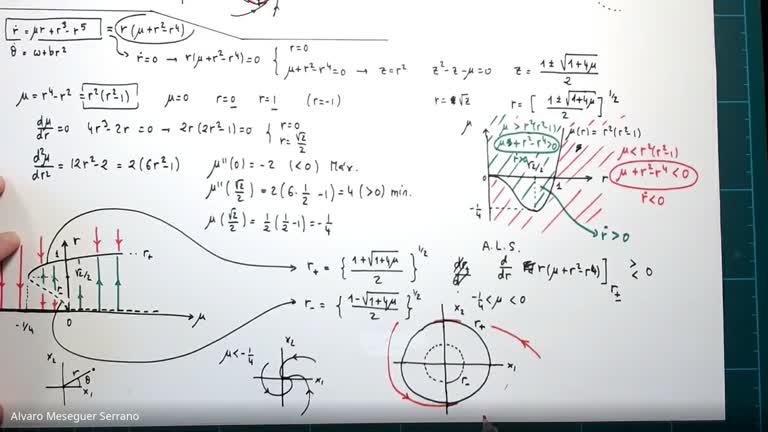 ṙ = μr + r³ - r⁵ = r(μ + r² - r⁴)
θ̇ = ω + br²
ṙ = 0 → r(μ + r² - r⁴) = 0 { r = 0
μ + r² - r⁴ = 0 → z = r² z² - z - μ = 0 z = (1 ± √(1+4μ)) / 2
μ = r⁴ - r² = r²(r² - 1) μ = 0 r = 0 r = 1 (r = -1)
r = √z r = [ (1 ± √(1+4μ)) / 2 ]^1/2
dμ/dr = 0 4r³ - 2r = 0 → 2r(2r² - 1) = 0 { r = 0
r = √2/2
d²μ/dr² = 12r² - 2 = 2(6r² - 1) μ''(0) = -2 (<0) Máx.
μ''(√2/2) = 2(6·1/2 - 1) = 4 (>0) min.
μ(√2/2) = 1/2(1/2 - 1) = -1/4
μ
μ > r²(r²-1)
μ + r² - r⁴ > 0
μ(r) = r²(r²-1)
μ < r²(r²-1)
μ + r² - r⁴ < 0
ṙ < 0
0
√2/2
1
r
-1/4
ṙ > 0
A.L.S.
d/dr r(μ + r² - r⁴) ]r± > < 0
r
1
√2/2
r+
r-
-1/4
0
μ
r+ = { (1 + √(1+4μ)) / 2 }^1/2
r- = { (1 - √(1+4μ)) / 2 }^1/2
-1/4 < μ < 0
x₂
r
θ
x₁
μ < -1/4
x₂
x₁
x₂
r+
r-
x₁
Alvaro Meseguer Serrano